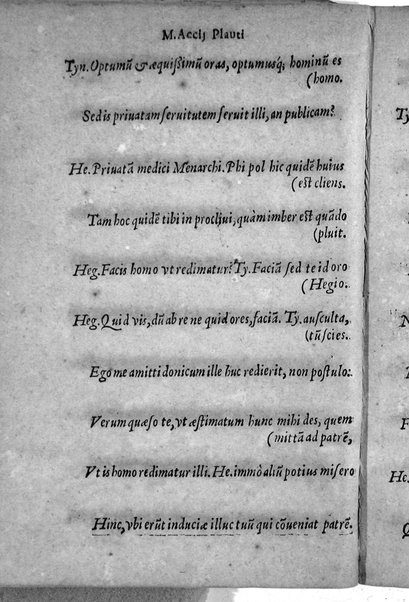 M. Accij Plauti
Tyn. Optumũ & æquißimũ oras, optumusq; hominũ es
(homo.
Sed is priuatam seruitutem seruit illi, an publicam?
He. Priuatã medici Menarchi. Phi pol hic quidẽ huius
(est cliens.
Tam hoc quidẽ tibi in procliui, quàm imber est quãdo
(pluit.
Heg. Facis homo vt redimatur? Ty. Faciã sed te id oro
(Hegio.
Heg. Quid vis, dũ ab re ne quid ores, faciã. Ty. ausculta,
(tũ scies.
Ego me amitti donicum ille huc redierit, non postulo:
Verum quæso te, vt æstimatum hunc mihi des, quem
(mittã ad patrẽ,
Vt is homo redimatur illi. He. immò aliũ potius misero
Hinc, vbi erũt induciæ illuc tuũ qui cõueniat patrẽ.